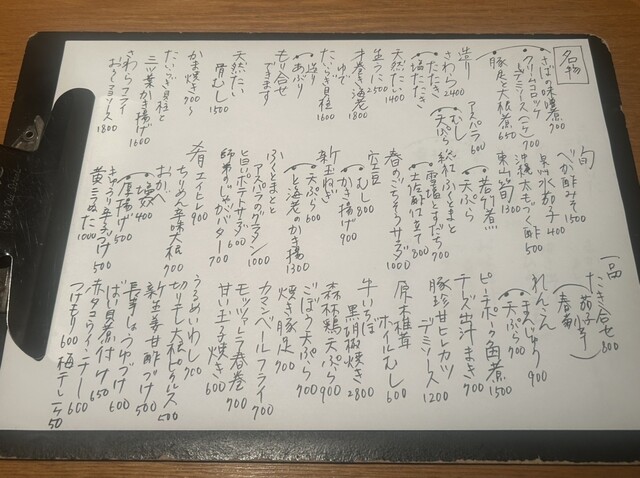 名物
さばの味噌煮 700
クリームコロッケ
デミソース(二ケ) 700
豚足と大根煮 650
造り
さわら 2400
たたき
塩たたき
天然たい 1400
生うに 2500
ゆで
才巻き海老 1800
たいらぎ貝柱 1600
造り
あぶり
もり合せ
できます
天然たい
骨むし 1500
かま焼き 700〜
たいらぎ貝柱と
三ツ葉かき揚げ 1600
さわらフライ
おろしソース 1800
旬
べか酢みそ 1500
泉州水茄子 400
沖縄太もづく酢 500
東山筍 1300
若竹煮
天ぷら
アスパラ 600
むし
天ぷら
紅ふくとまと
雪塩とすだち 700
土佐酢仕立て 800
春のごちそうサラダ 1000
空豆
むし 800
かき揚げ 900
新玉ねぎ
天ぷら 600
と海老のかき揚 1300
ふくとまとと
アスパラのグラタン 1000
と旨いポテトサラダ 600
師弟のじゃがバター 700
肴
エイヒレ 900
ちりめん辛味大根 700
おかへ
塩 400
唐揚げ 500
きゅうり辛子つけ 500
黄ニラぬた 1000
一品
たき合せ 800
茄子
春菊
れんこん
まんじゅう 900
天ぷら 700
ピーナポーク角煮 1500
チーズ出汁まき 700
豚珍甘ヒレカツ
デミソース 1200
原木椎茸
ホイルむし 600
牛いちぼ
黒胡椒焼き 2800
森林鶏天ぷら 900
ごぼう天ぷら 700
焼き豚足 700
カマンベールフライ 700
モッツァレラ春巻 700
甘い玉子焼き 600
うるめいわし 700
切り干し大根ピクルス 500
新生姜甘酢づけ 500
長芋しょうゆづけ 600
ばい貝煮付け 650
赤タコウインナー 600
つけもり 600
梅干し 150